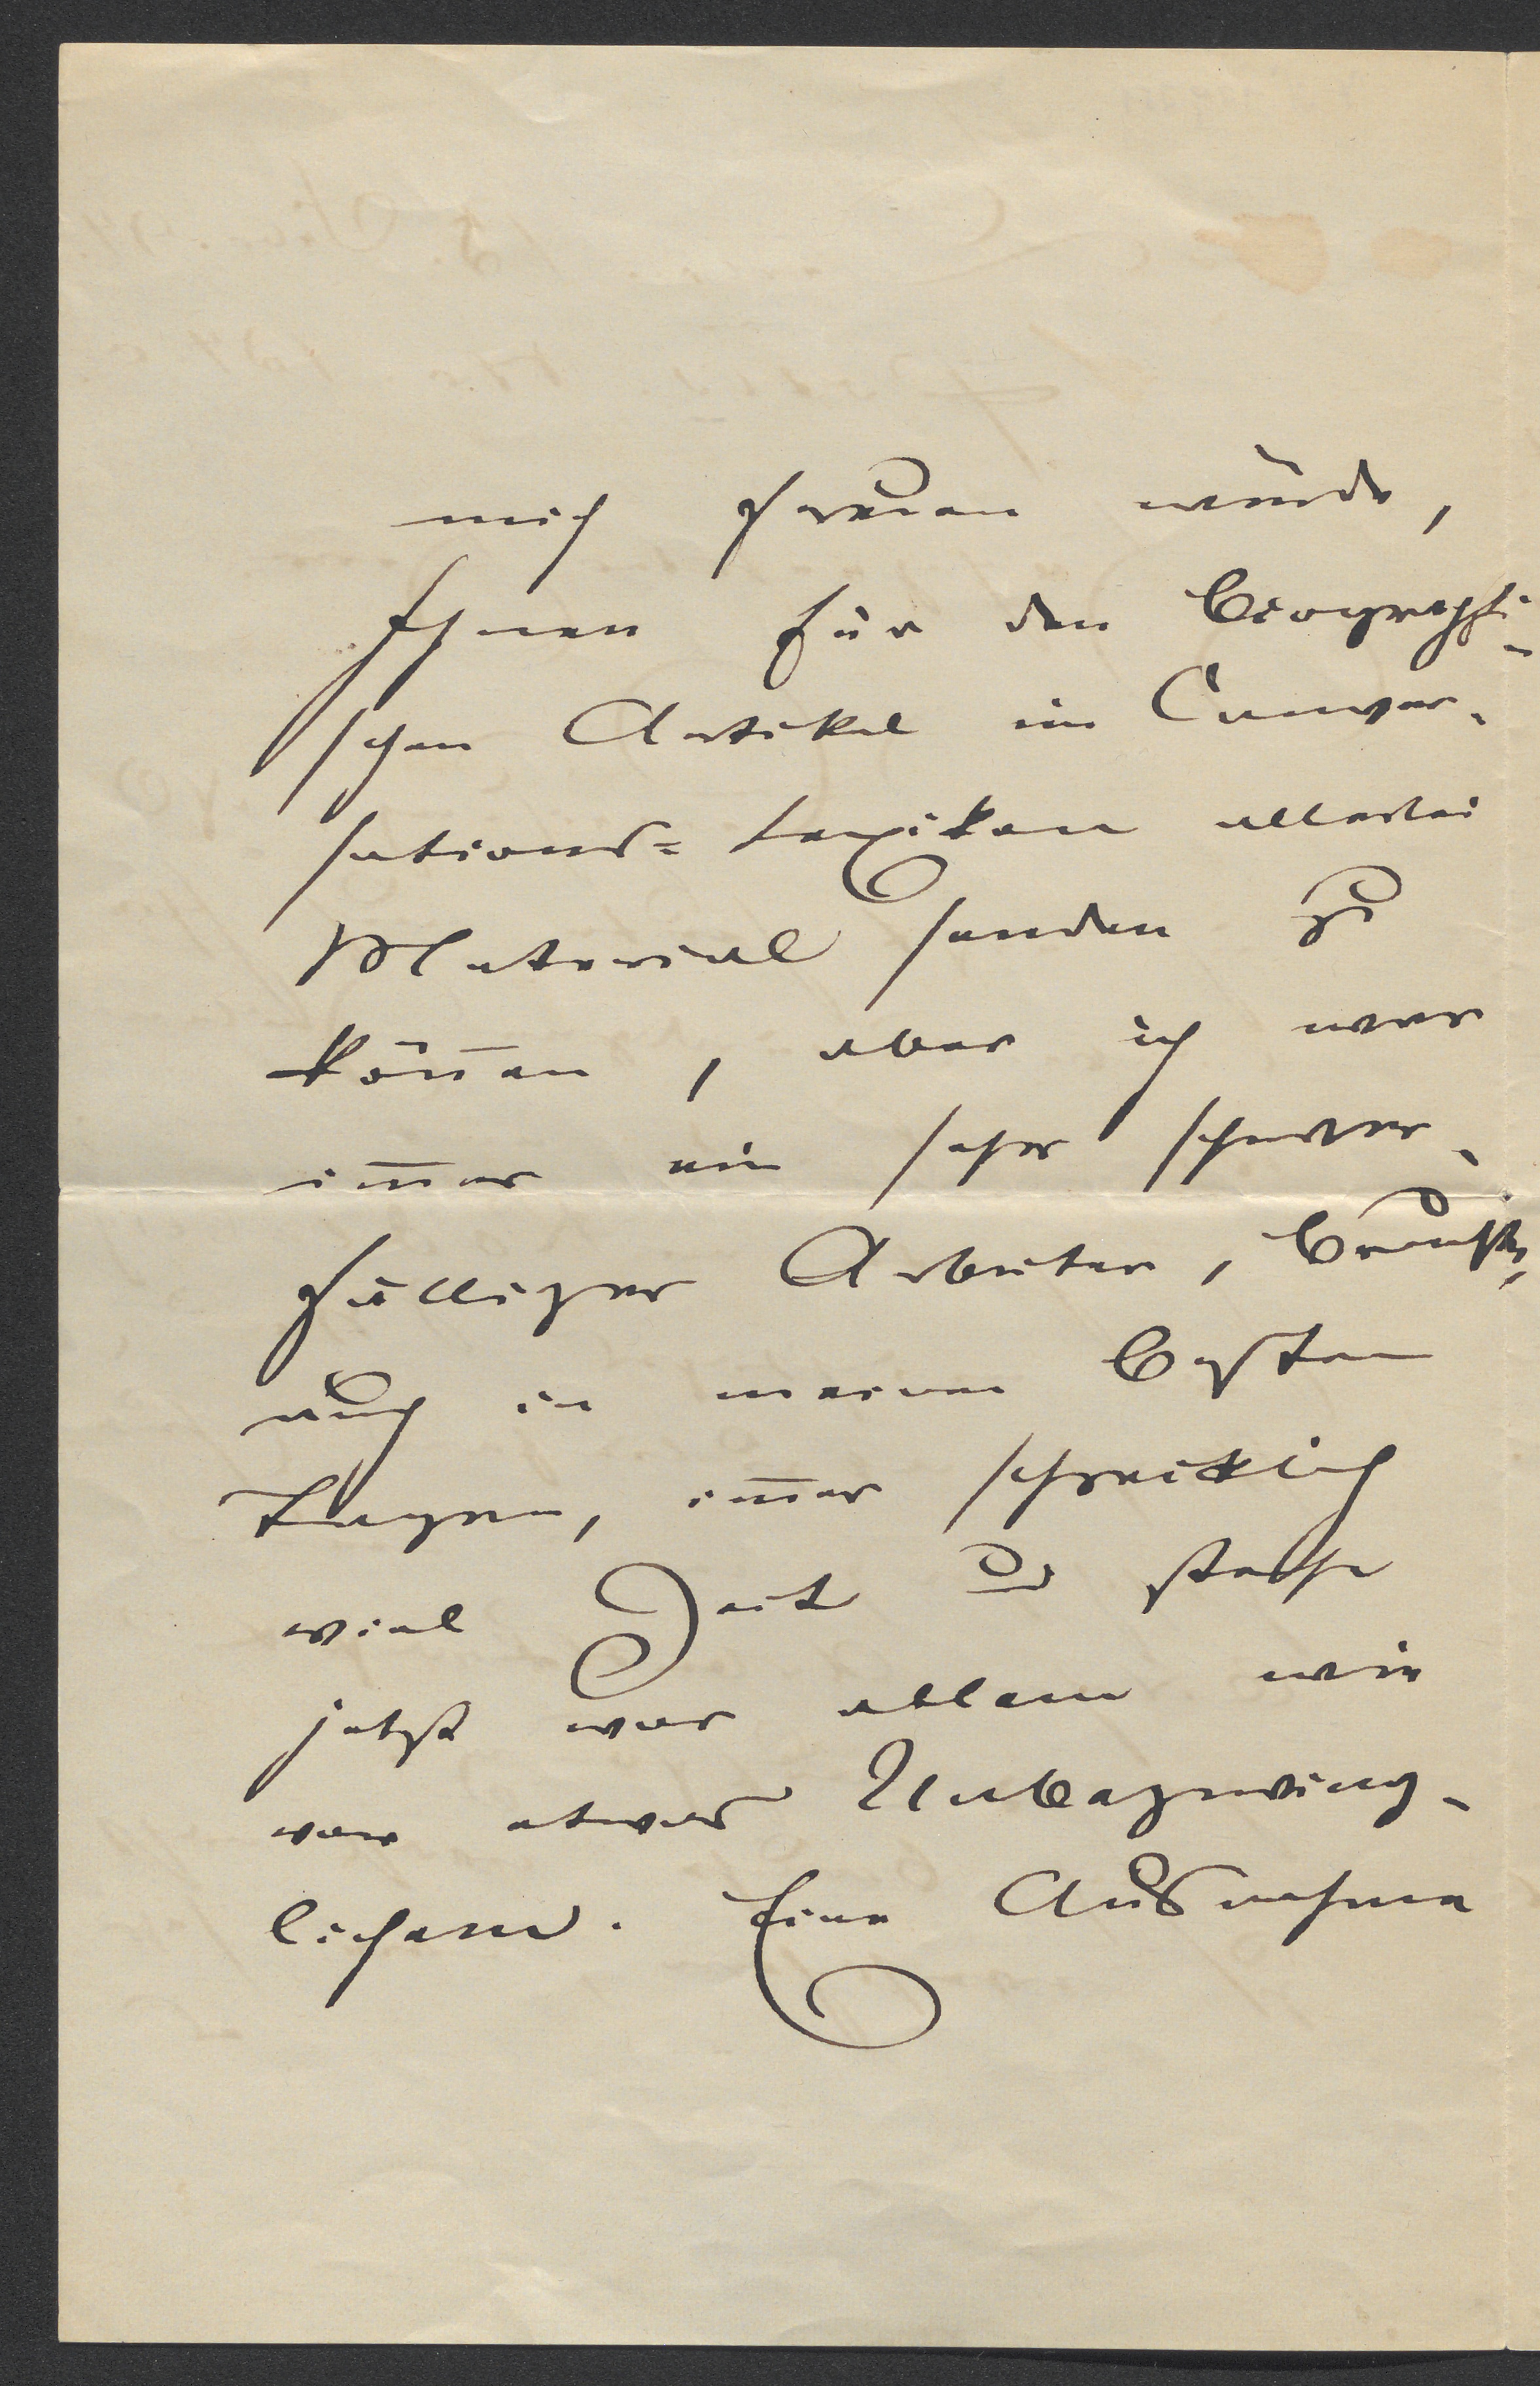 mich freuen würde,
Ihnen für den biographi-
schen Artikel im Conver-
sations=Lexikon allerlei
Material senden zu
können, aber ich war
immer ein sehr schwer-
fälliger Arbeiter, brauchte,
auch in meinen besten
Tagen, immer schrecklich
viel Zeit u stehe
jetzt vor allem wie
vor etwas Unbezwing-
lichem. Eine Ausnahme